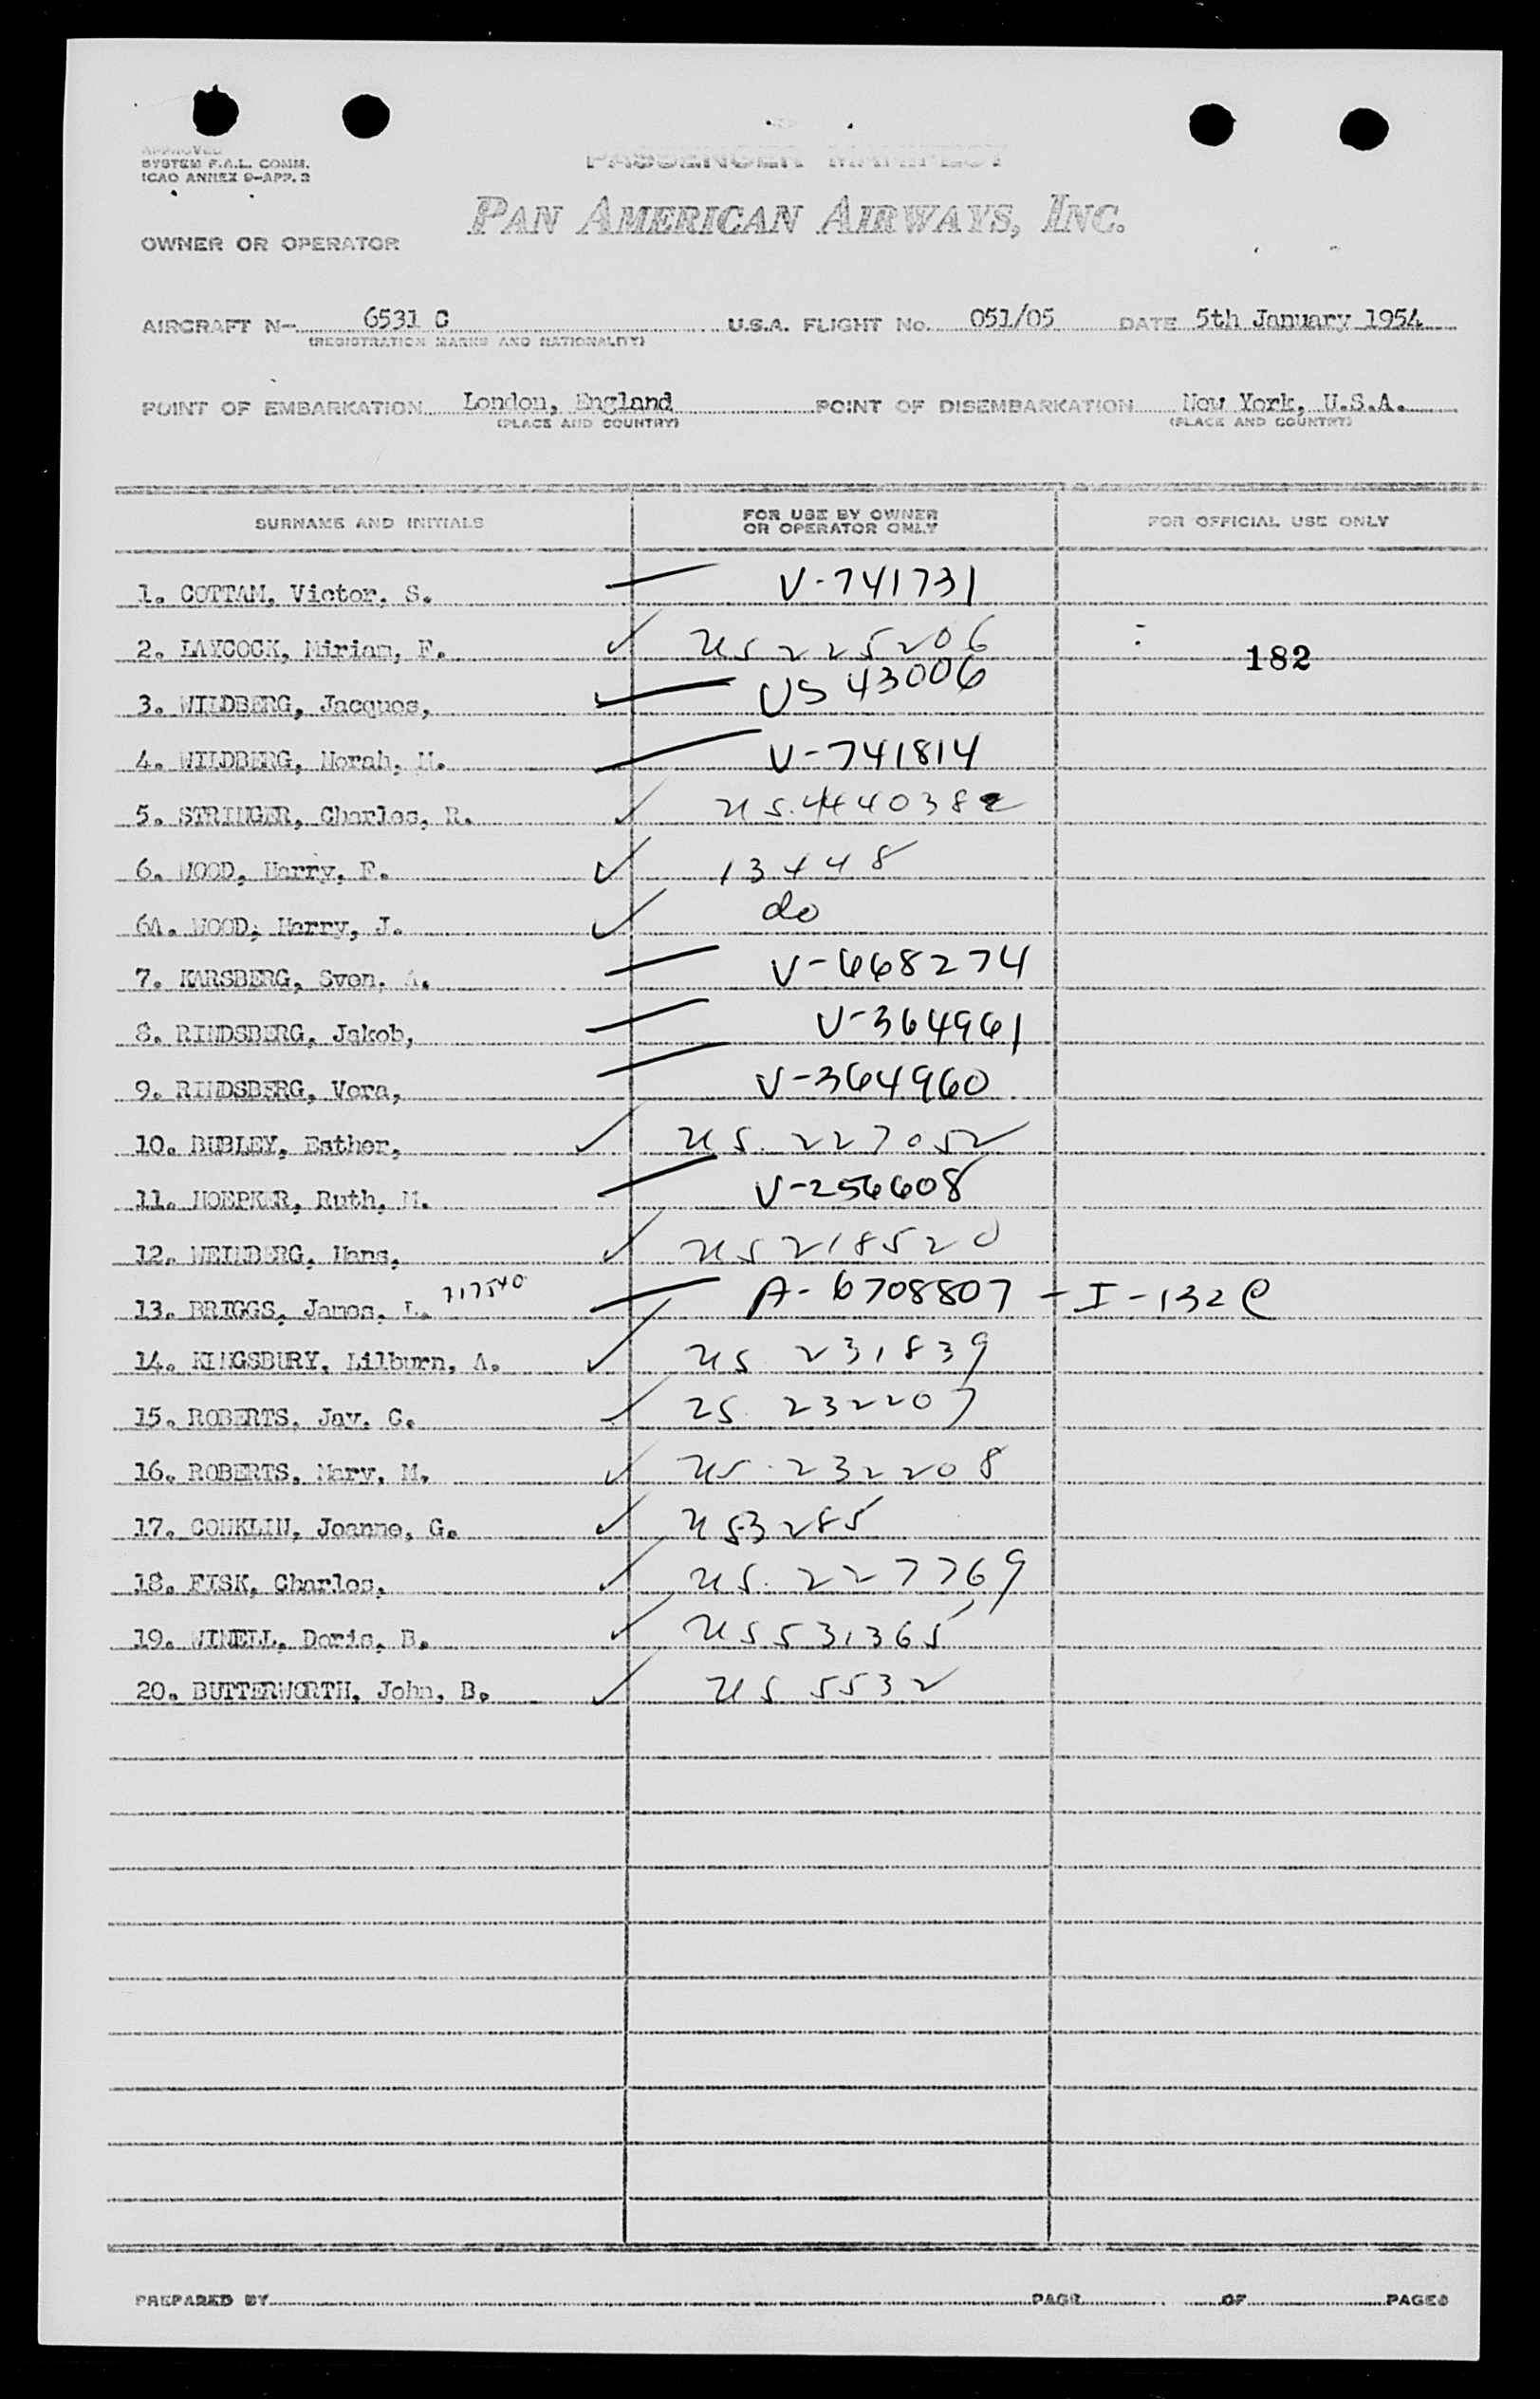 APPROVED
SYSTEM F.A.L. COMM.
ICAO ANNEX 9-APP. 2
PASSENGER MANIFEST
OWNER OR OPERATOR PAN AMERICAN AIRWAYS, INC.
AIRCRAFT N- 6531 C U.S.A. FLIGHT No. 051/05 DATE 5th January 1954
(REGISTRATION MARKS AND NATIONALITY)
POINT OF EMBARKATION London, England POINT OF DISEMBARKATION New York, U.S.A.
(PLACE AND COUNTRY) (PLACE AND COUNTRY)
SURNAME AND INITIALS FOR USE BY OWNER OR OPERATOR ONLY FOR OFFICIAL USE ONLY
1. COTTAM, Victor, S. V-741731
2. LAYCOCK, Miriam, F. US 225206 182
3. WILDBERG, Jacques, US 43006
4. WILDBERG, Norah, M. V-741814
5. STRINGER, Charles, R. US.4440382
6. WOOD, Harry, F. 13448
6A. WOOD, Harry, J. do
7. KARSBERG, Sven, A. V-668274
8. RINDSBERG, Jakob, V-364961
9. RINDSBERG, Vera, V-364960
10. BUBLEY, Esther, US. 227052
11. HOEPKER, Ruth, M. V-256608
12. WEINBERG, Hans, US 218520
13. BRIGGS, James, L. 717540 A-6708807 - I-132 C
14. KINGSBURY, Lilburn, A. US 231839
15. ROBERTS, Jay, C. US 232207
16. ROBERTS, Mary, M. US. 232208
17. CONKLIN, Joanne, G. US3285
18. FISK, Charles, US. 227769
19. WINELL, Doris, B. US 531365
20. BUTTERWORTH, John, B. US 5532
PREPARED BY PAGE OF PAGES